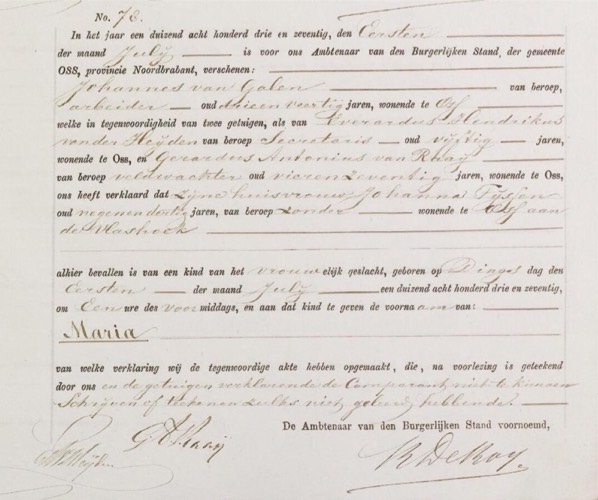 No. 78.
In het jaar een duizend acht honderd drie en zeventig, den Eersten
der maand July is voor ons Ambtenaar van den Burgerlijken Stand, der gemeente
OSS, provincie Noordbrabant, verschenen:
Johannes van Galen van beroep,
arbeider oud drieenveertig jaren, wonende te Oss
welke in tegenwoordigheid van twee getuigen, als van Everardus Hendrikus
van der Heyden van beroep Secretaris oud vijftig jaren,
wonende te Oss, en Gerardus Antonius van Raaij
van beroep veldwachter oud vierenzeventig jaren, wonende te Oss,
ons heeft verklaard dat zijne huisvrouw Johanna Tijssen
oud negenendertig jaren, van beroep zonder wonende te Oss aan
de Vlashoek
alhier bevallen is van een kind van het vrouwelijk geslacht, geboren op Dingsdag den
Eersten der maand July een duizend acht honderd drie en zeventig,
om Een ure des voormiddags, en aan dat kind te geven de voornaam van:
Maria
van welke verklaring wij de tegenwoordige akte hebben opgemaakt, die, na voorlezing is geteekend
door ons en de getuigen verklarende de Comparant niet te kunnen
Schrijven of teekenen zulks niet geleerd hebbende.
De Ambtenaar van den Burgerlijken Stand voornoemd,